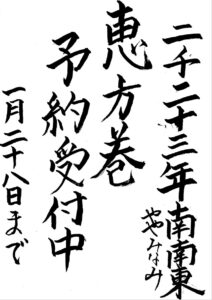 二千二十三年南南東
ややみなみ
恵方巻
予約受付中
一月二十八日まで